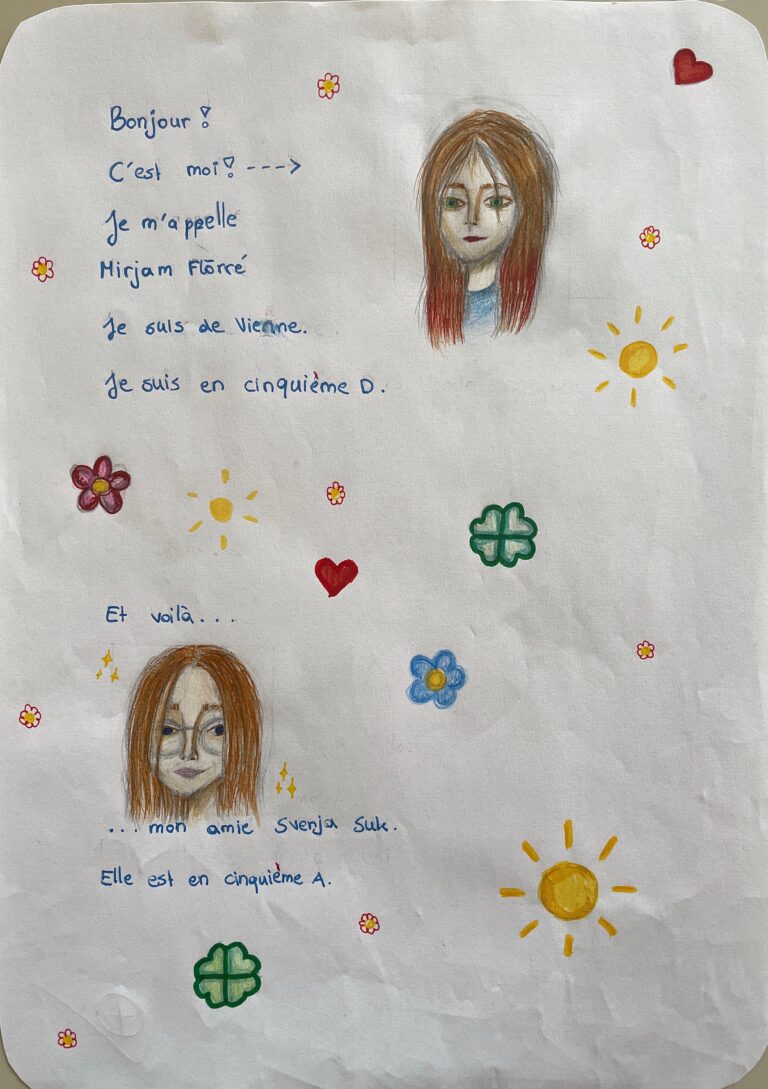 Bonjour !
C'est moi! --->
Je m'appelle
Mirjam Florré
Je suis de Vienne.
Je suis en cinquième D.
Et voilà...
...mon amie Svenja Suk.
Elle est en cinquième A.